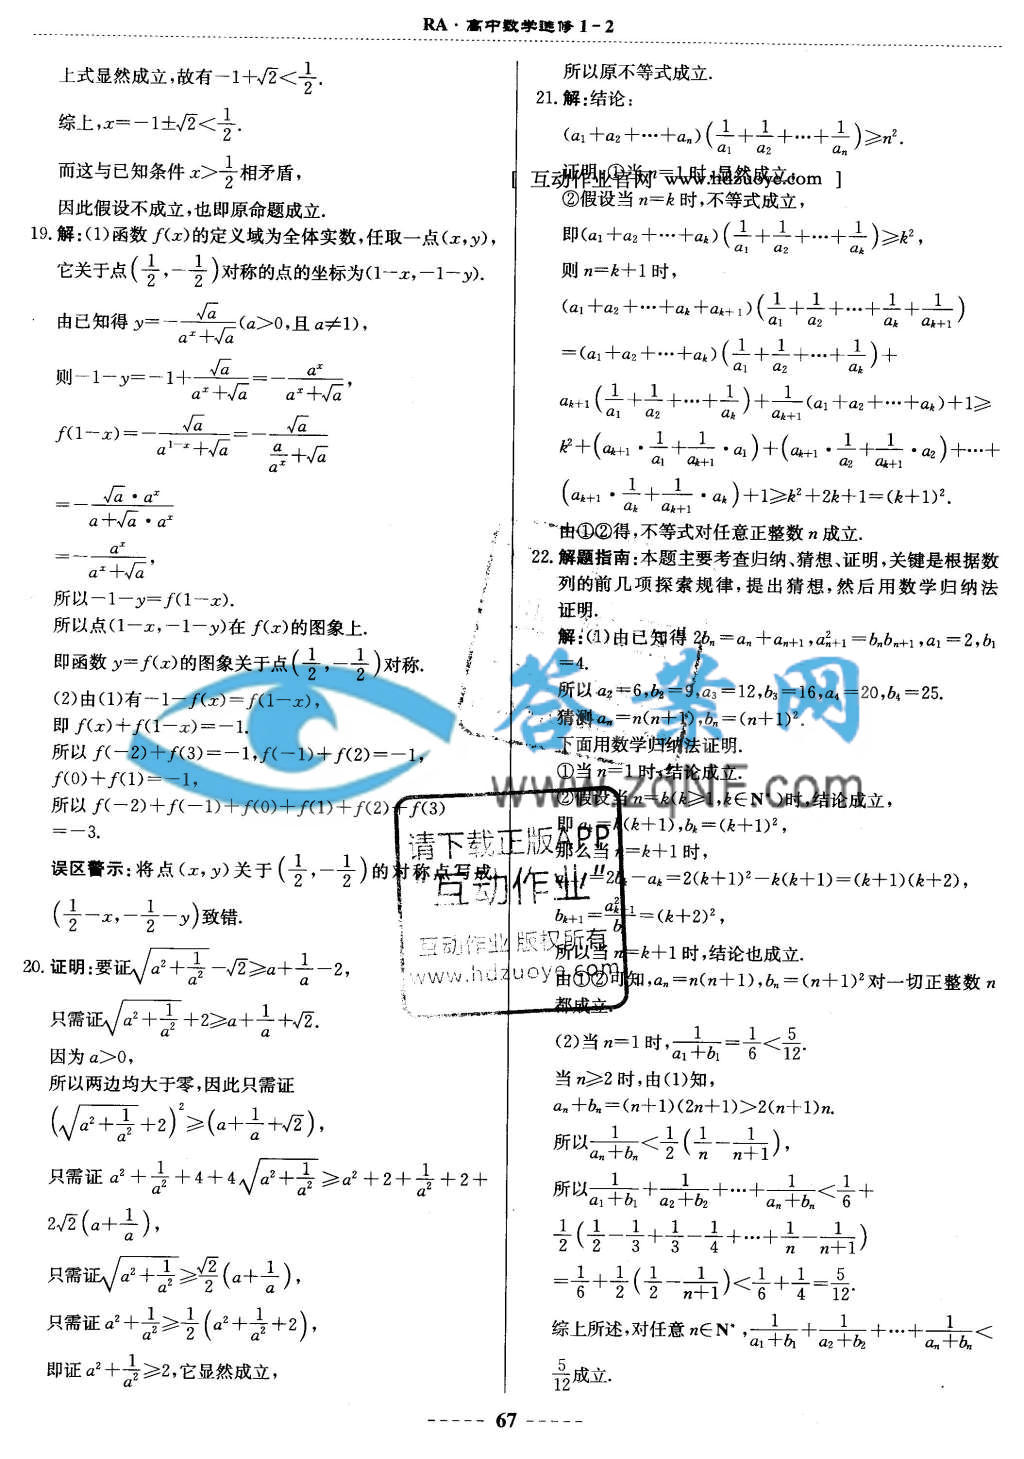 RA·高中数学选修1-2
上式显然成立,故有-1+√2<1/2.
综上,x=-1±√2<1/2.
而这与已知条件 x>1/2 相矛盾,
因此假设不成立,也即原命题成立.
19. 解:(1)函数 f(x)的定义域为全体实数,任取一点(x,y),
它关于点(1/2,-1/2)对称的点的坐标为(1-x,-1-y).
由已知得 y=-√a/(a^x+√a)(a>0,且 a≠1),
则-1-y=-1+√a/(a^x+√a)=-a^x/(a^x+√a),
f(1-x)=-√a/(a^(1-x)+√a)=-√a/(a/a^x+√a)
=-√a·a^x/(a+√a·a^x)
=-a^x/(a^x+√a),
所以-1-y=f(1-x).
所以点(1-x,-1-y)在 f(x)的图象上.
即函数 y=f(x)的图象关于点(1/2,-1/2)对称.
(2)由(1)有-1-f(x)=f(1-x),
即 f(x)+f(1-x)=-1.
所以 f(-2)+f(3)=-1,f(-1)+f(2)=-1,
f(0)+f(1)=-1,
所以 f(-2)+f(-1)+f(0)+f(1)+f(2)+f(3)
=-3.
误区警示:将点(x,y)关于(1/2,-1/2)的对称点写成
(1/2-x,-1/2-y)致错.
20. 证明:要证√(a²+1/a²)-√2≥a+1/a-2,
只需证√(a²+1/a²)+2≥a+1/a+√2.
因为 a>0,
所以两边均大于零,因此只需证
(√(a²+1/a²)+2)²≥(a+1/a+√2),
只需证 a²+1/a²+4+4√(a²+1/a²)≥a²+2+1/a²+2+
2√2(a+1/a),
只需证√(a²+1/a²)≥√2/2(a+1/a),
只需证 a²+1/a²≥1/2(a²+1/a²+2),
即证 a²+1/a²≥2,它显然成立,
所以原不等式成立.
21. 解:结论:
(a₁+a₂+···+aₙ)(1/a₁+1/a₂+···+1/aₙ)≥n².
证明:①当 n=1 时,显然成立;
[ 互动作业官网 www.hdzuoye.com ]
②假设当 n=k 时,不等式成立,
即(a₁+a₂+···+aₖ)(1/a₁+1/a₂+···+1/aₖ)≥k²,
则 n=k+1 时,
(a₁+a₂+···+aₖ+aₖ₊₁)(1/a₁+1/a₂+···+1/aₖ+1/aₖ₊₁)
=(a₁+a₂+···+aₖ)(1/a₁+1/a₂+···+1/aₖ)+
aₖ₊₁(1/a₁+1/a₂+···+1/aₖ)+1/aₖ₊₁(a₁+a₂+···+aₖ)+1≥
k²+(aₖ₊₁·1/a₁+1/aₖ₊₁·a₁)+(aₖ₊₁·1/a₂+1/aₖ₊₁·a₂)+···+
(aₖ₊₁·1/aₖ+1/aₖ₊₁·aₖ)+1≥k²+2k+1=(k+1)².
由①②得,不等式对任意正整数 n 成立.
22. 解题指南:本题主要考查归纳、猜想、证明,关键是根据数
列的前几项探索规律,提出猜想,然后用数学归纳法
证明.
解:(1)由已知得 2bₙ=aₙ+aₙ₊₁,a²ₙ₊₁=bₙbₙ₊₁,a₁=2,b₁
=4.
所以 a₂=6,b₂=9,a₃=12,b₃=16,a₄=20,b₄=25.
猜测 aₙ=n(n+1),bₙ=(n+1)².
下面用数学归纳法证明.
①当 n=1 时,结论成立.
②假设当 n=k(k≥1,k∈N*)时,结论成立,
即 aₖ=k(k+1),bₖ=(k+1)²,
那么当 n=k+1 时,
aₖ₊₁=2bₖ-aₖ=2(k+1)²-k(k+1)=(k+1)(k+2),
bₖ₊₁=a²ₖ₊₁/bₖ=(k+2)²,
所以当 n=k+1 时,结论也成立.
由①②可知,aₙ=n(n+1),bₙ=(n+1)²对一切正整数 n
都成立.
(2)当 n=1 时,1/(a₁+b₁)=1/6<5/12.
当 n≥2 时,由(1)知,
aₙ+bₙ=(n+1)(2n+1)>2(n+1)n.
所以1/(aₙ+bₙ)<1/2(1/n-1/(n+1)),
所以1/(a₁+b₁)+1/(a₂+b₂)+···+1/(aₙ+bₙ)<1/6+
1/2(1/2-1/3+1/3-1/4+···+1/n-1/(n+1))
=1/6+1/2(1/2-1/(n+1))<1/6+1/4=5/12.
综上所述,对任意 n∈N*,1/(a₁+b₁)+1/(a₂+b₂)+···+1/(aₙ+bₙ)<
5/12成立.
答案网
www.zqnf.com
请下载正版APP
互动作业"
互动作业 版权所有
www.hdzuoye.com
----- 67 -----